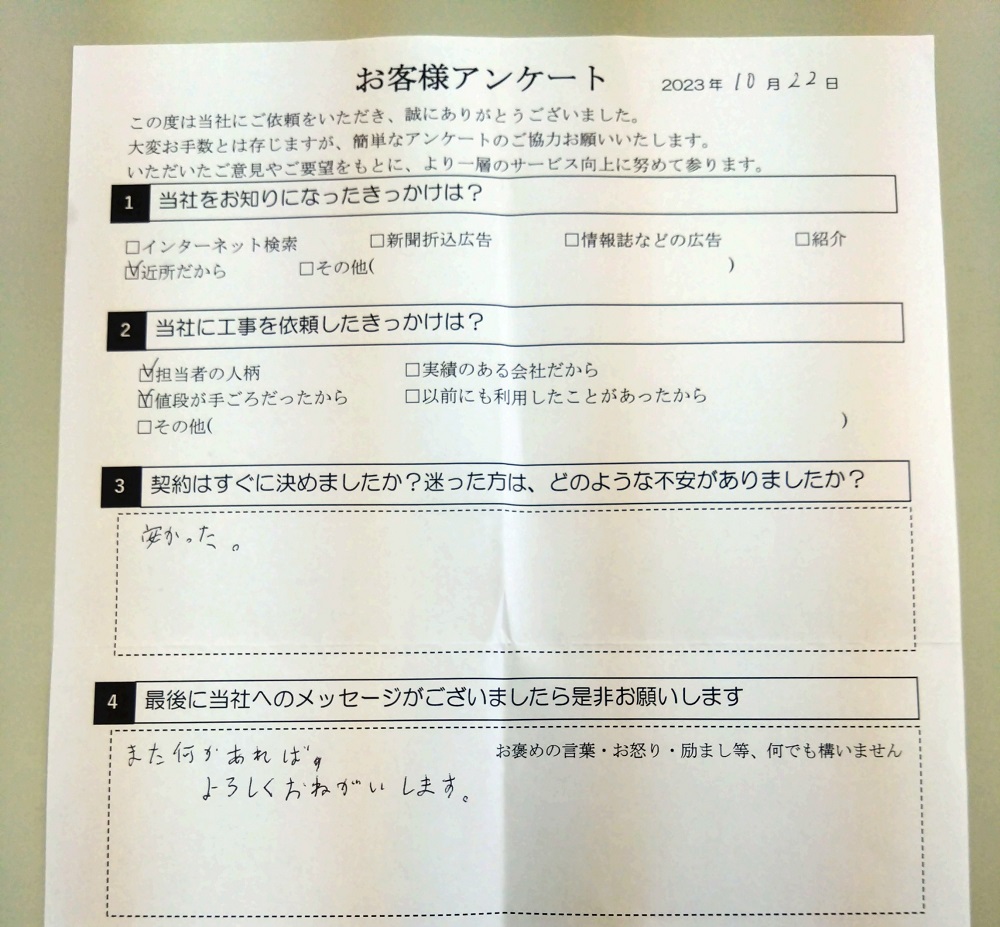 お客様アンケート 2023年10月22日
この度は当社にご依頼をいただき、誠にありがとうございました。
大変お手数とは存じますが、簡単なアンケートのご協力お願いいたします。
いただいたご意見やご要望をもとに、より一層のサービス向上に努めて参ります。
1 当社をお知りになったきっかけは？
□インターネット検索 □新聞折込広告 □情報誌などの広告 □紹介
☑近所だから □その他( )
2 当社に工事を依頼したきっかけは？
☑担当者の人柄 □実績のある会社だから
☑値段が手ごろだったから □以前にも利用したことがあったから
□その他( )
3 契約はすぐに決めましたか？迷った方は、どのような不安がありましたか？
安かった。
4 最後に当社へのメッセージがございましたら是非お願いします
お褒めの言葉・お怒り・励まし等、何でも構いません
また何かあれば。
よろしくおねがいします。